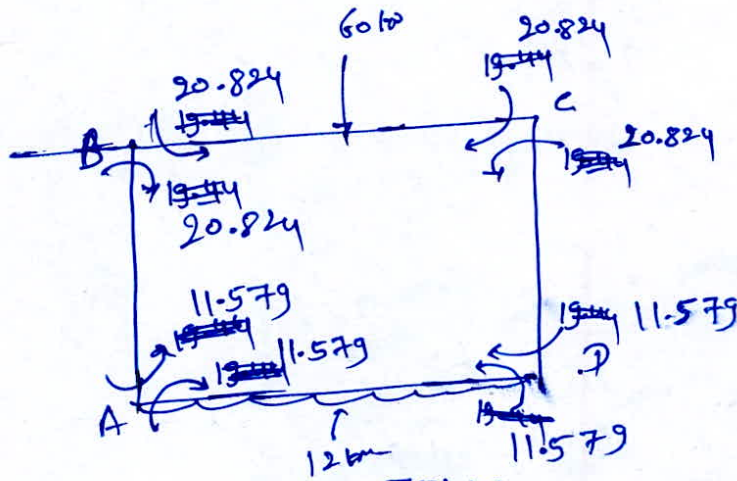 60 kN
20.824
20.824
B
C
20.824
20.824
11.579
11.579
11.579
A
D
12 kN
11.579